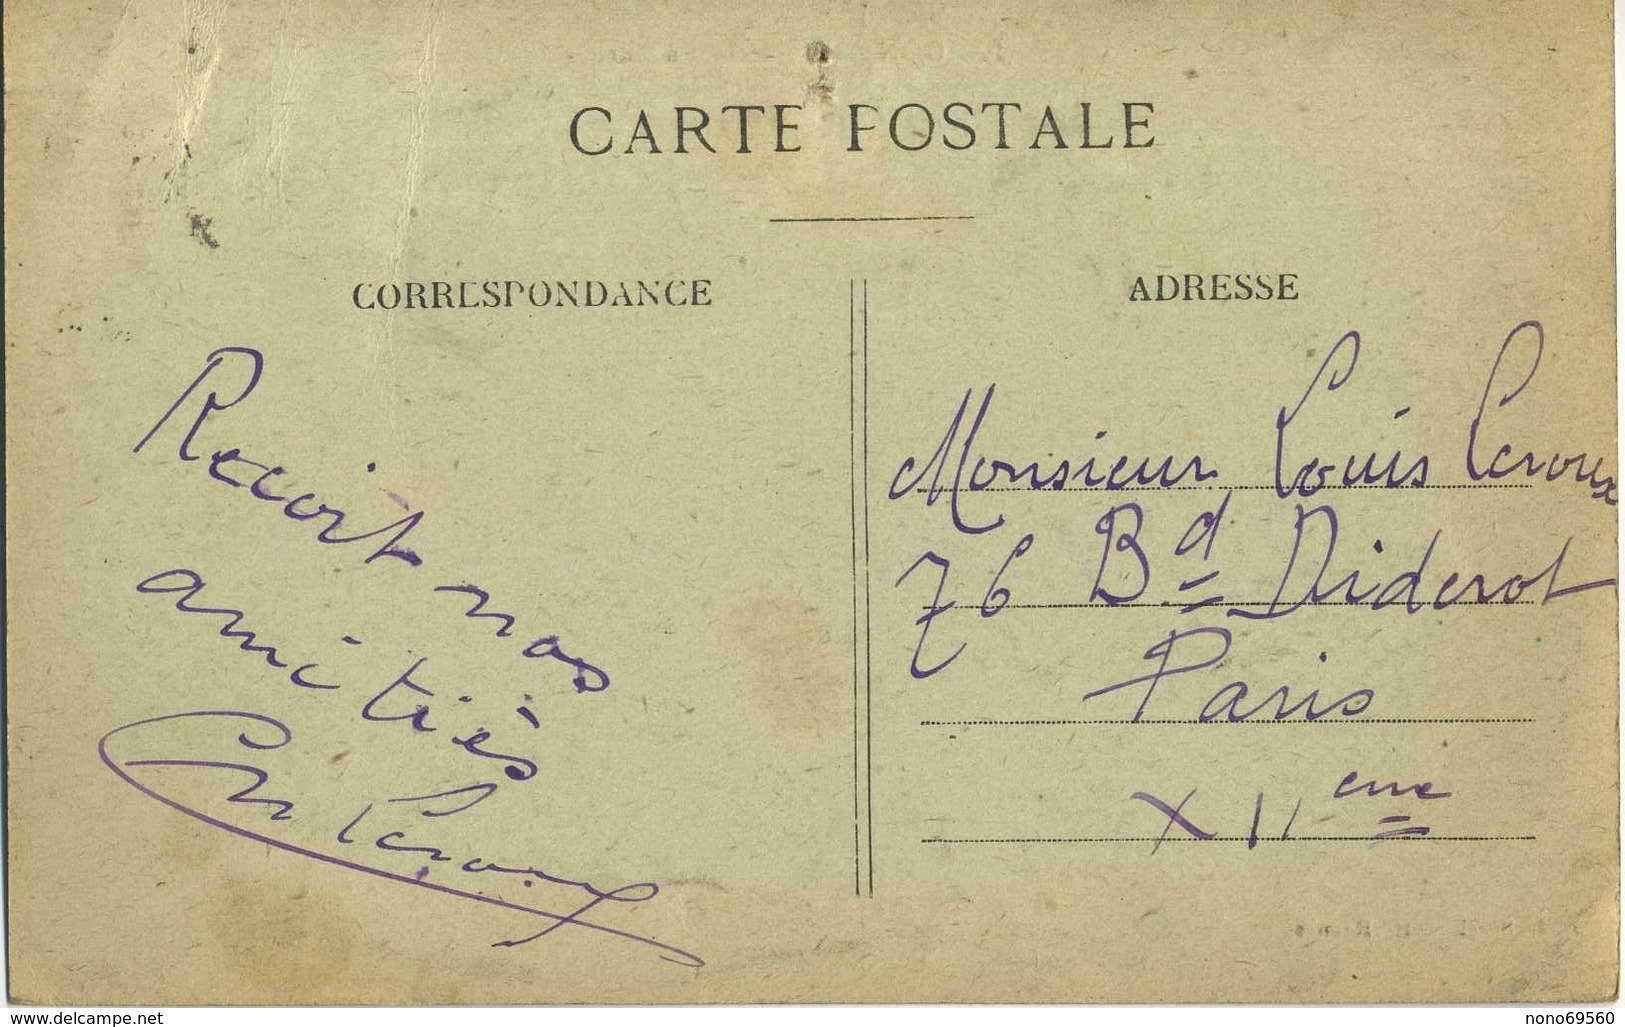 CARTE POSTALE
CORRESPONDANCE
Recoit nos
amitiés
Leroux
ADRESSE
Monsieur Louis Leroux
76 Bd Diderot
Paris
XIIeme
www.delcampe.net
nono69560